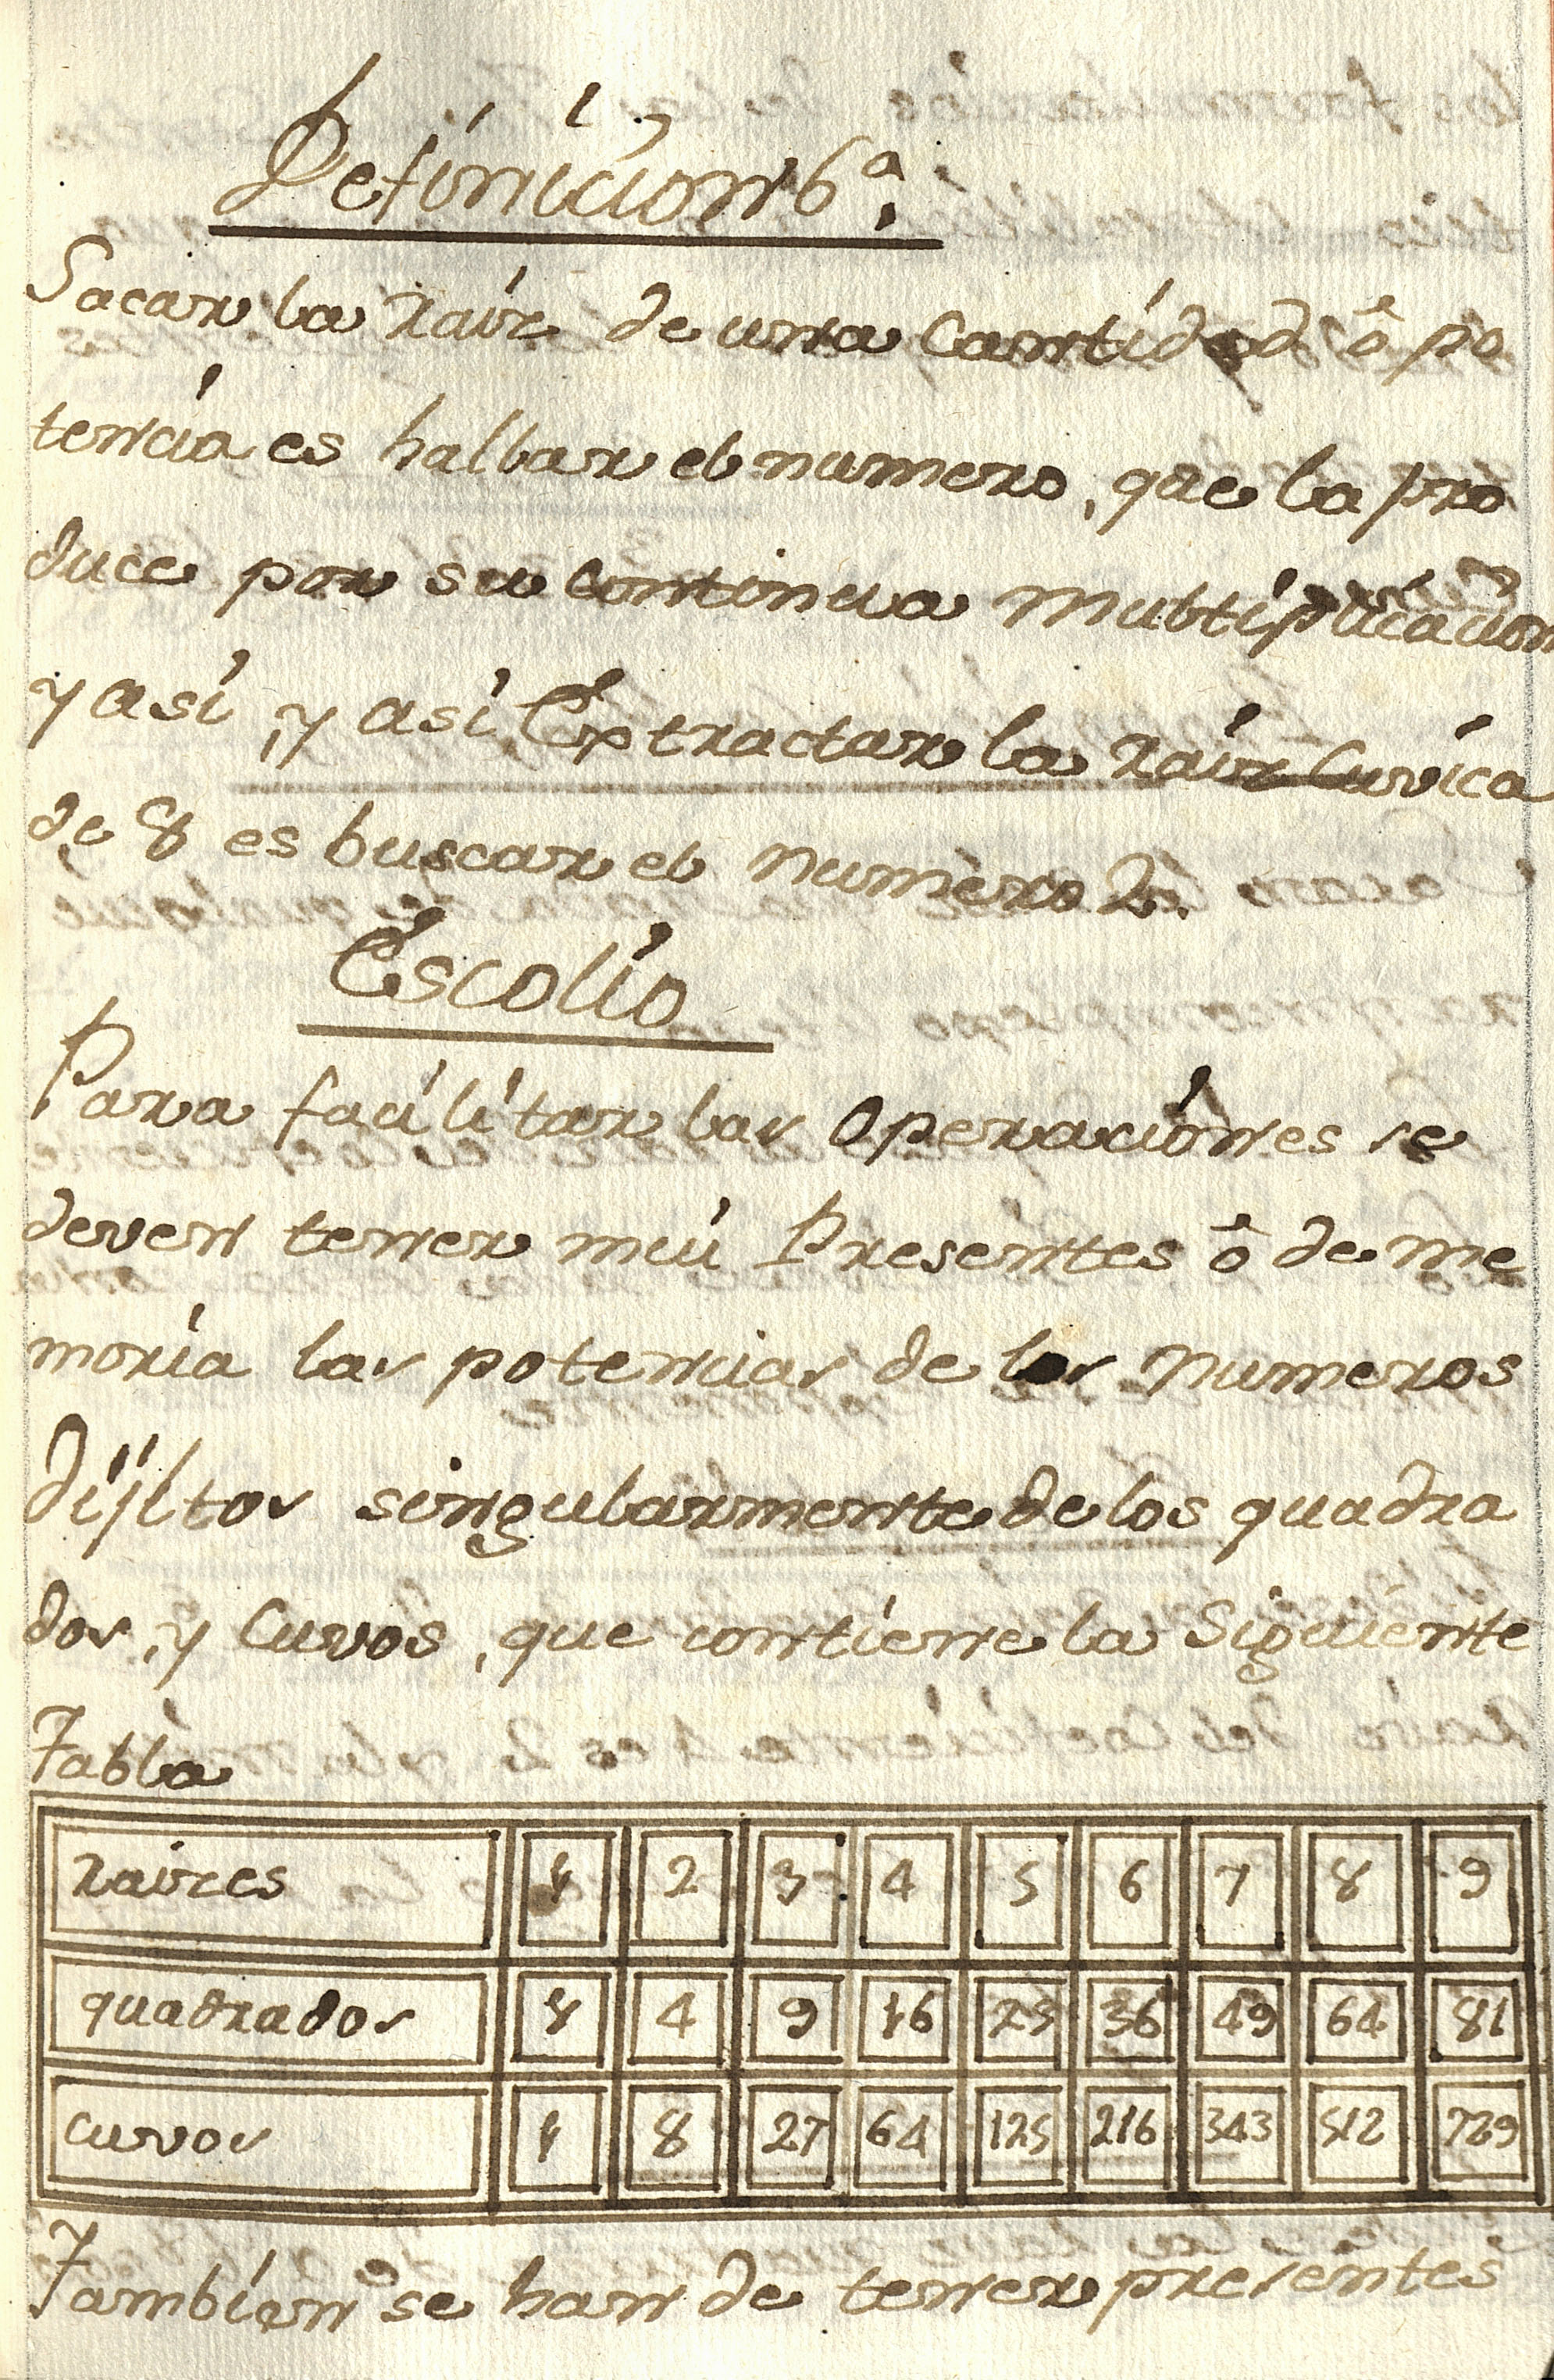 Definicion 6ª.
Sacar la raiz de una Cantidad ô po
tencia es hallar el numero, que la pro
duce por su continua Multiplicacion
y asi, y asi Extractar la raiz Cuvica
de 8 es buscar el numero 2.
Escolio
Para facilitar las Operaciones se
deven tener mui Presentes ô de me
moria las potencias de los numeros
dijitos singularmente de los quadra
dos, y Cuvos, que contiene la Siguiente
Tabla
raizes 1 2 3 4 5 6 7 8 9
quadrados 1 4 9 16 25 36 49 64 81
cuvos 1 8 27 64 125 216 343 512 729
Tambien se han de tener presentes